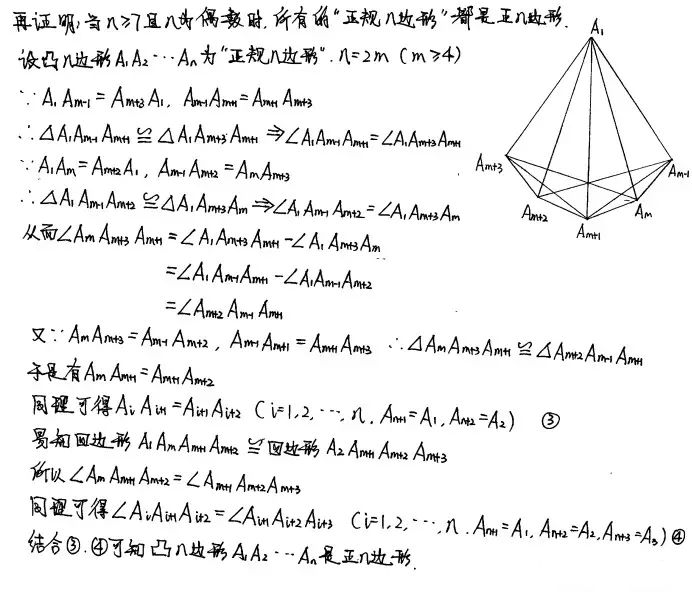 再证明:当n≥7且n为偶数时,所有的"正规n边形"都是正n边形.
设凸n边形A₁A₂⋯Aₙ为"正规n边形".n=2m (m≥4)
∵A₁Aₘ₋₁=Aₘ₊₃A₁, Aₘ₋₁Aₘ₊₁=Aₘ₊₁Aₘ₊₃
∴△A₁Aₘ₋₁Aₘ₊₁≌△A₁Aₘ₊₃Aₘ₊₁⇒∠A₁Aₘ₋₁Aₘ₊₁=∠A₁Aₘ₊₃Aₘ₊₁
∵A₁Aₘ=Aₘ₊₂A₁, Aₘ₋₁Aₘ₊₂=AₘAₘ₊₃
∴△A₁Aₘ₋₁Aₘ₊₂≌△A₁Aₘ₊₃Aₘ⇒∠A₁Aₘ₋₁Aₘ₊₂=∠A₁Aₘ₊₃Aₘ
从而∠AₘAₘ₊₃Aₘ₊₁=∠A₁Aₘ₊₃Aₘ₊₁-∠A₁Aₘ₊₃Aₘ
=∠A₁Aₘ₋₁Aₘ₊₁-∠A₁Aₘ₋₁Aₘ₊₂
=∠Aₘ₊₂Aₘ₋₁Aₘ₊₁
又∵AₘAₘ₊₃=Aₘ₋₁Aₘ₊₂, Aₘ₋₁Aₘ₊₁=Aₘ₊₁Aₘ₊₃ ∴△AₘAₘ₊₃Aₘ₊₁≌△Aₘ₊₂Aₘ₋₁Aₘ₊₁
于是有AₘAₘ₊₁=Aₘ₊₁Aₘ₊₂
同理可得AᵢAᵢ₊₁=Aᵢ₊₁Aᵢ₊₂ (i=1,2,⋯,n, Aₙ₊₁=A₁, Aₙ₊₂=A₂) ③
易知四边形A₁AₘAₘ₊₁Aₘ₊₂≌四边形A₂Aₘ₊₁Aₘ₊₂Aₘ₊₃
所以∠AₘAₘ₊₁Aₘ₊₂=∠Aₘ₊₁Aₘ₊₂Aₘ₊₃
同理可得∠AᵢAᵢ₊₁Aᵢ₊₂=∠Aᵢ₊₁Aᵢ₊₂Aᵢ₊₃ (i=1,2,⋯,n. Aₙ₊₁=A₁, Aₙ₊₂=A₂, Aₙ₊₃=A₃) ④
结合③.④可知凸n边形A₁A₂⋯Aₙ是正n边形.
A₁
Aₘ₊₃
Aₘ₋₁
Aₘ₊₂
Aₘ
Aₘ₊₁